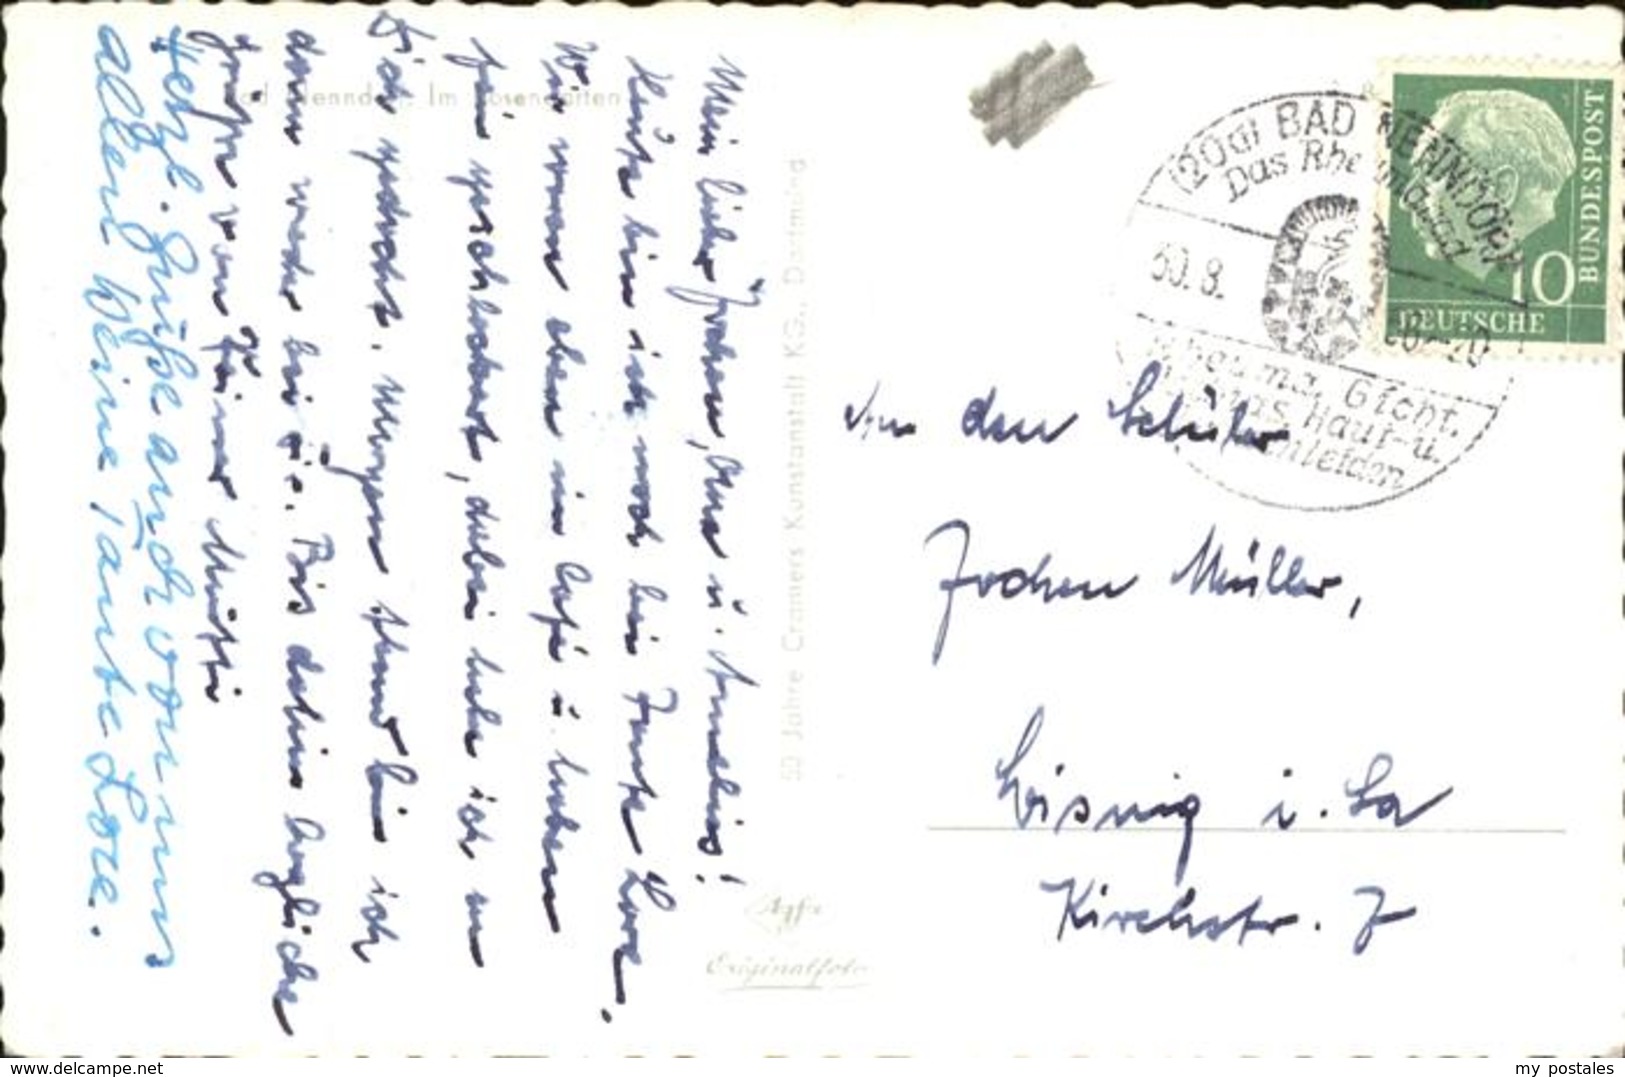 Bad Nenndorf. Im Rosengarten
Mein lieber Jochen, Oma u. Annelies!
Heute bin ich noch bei Tante Lore.
Wir waren eben im Café u. haben
fein geschleckert, dabei habe ich an
Dich gedacht. Morgen Abend bin ich
dann wieder bei Dir. Bis dahin herzliche
Grüße von Deiner Mutti
Herzl. Grüße auch von uns
allen Deine Tante Lore.
50 Jahre Cramers Kunstanstalt KG., Dortmund
Agfa
Originalfoto
(20a) BAD NENNDORF
Das Rheumabad
30.8.
-20
Rheuma, Gicht,
Haut- u.
leiden
BUNDESPOST
10
DEUTSCHE
An den Schüler
Jochen Müller,
Leisnig i. Sa
Kirchstr. 7
my postales
www.delcampe.net